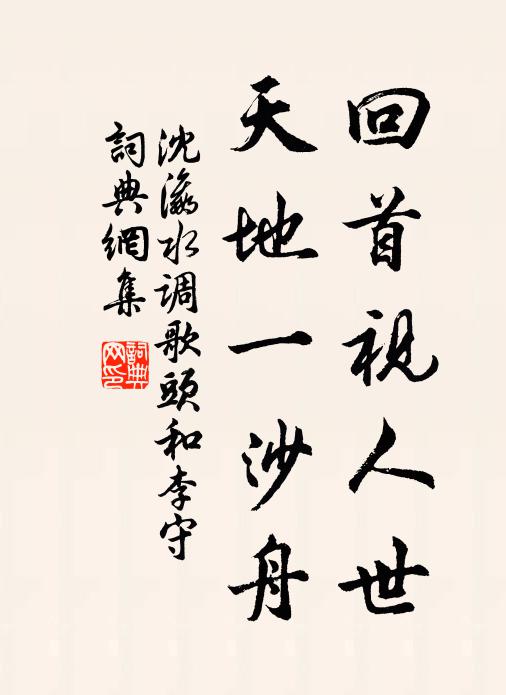 回首視人世
天地一沙舟
沈瀛水调歌頭和李守
詞典網集
詞典网印